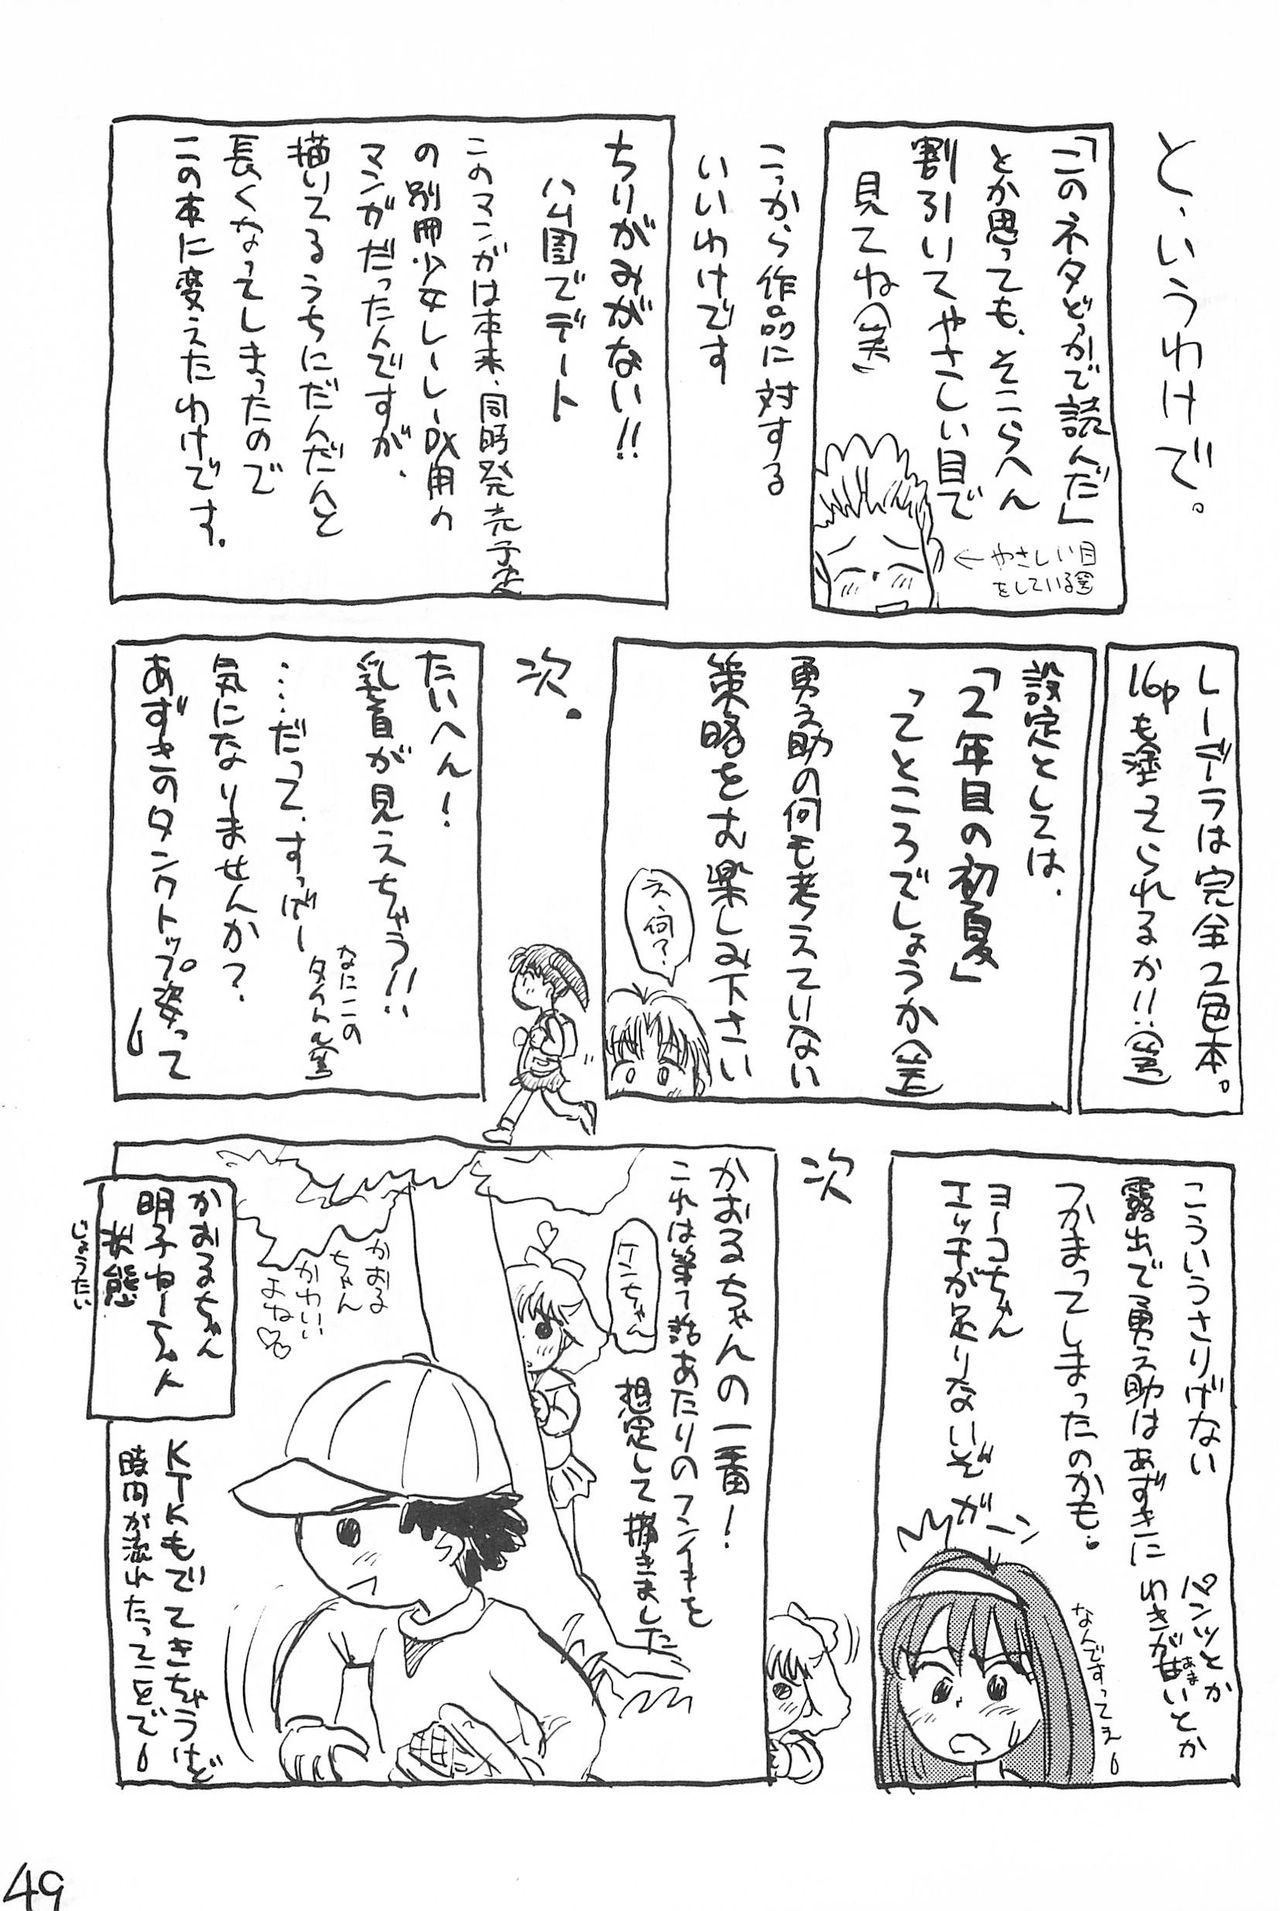 と、いうわけで。
「このネタどっかで読んだ」
とか思っても、そこらへん
割引いてやさしい目で
見てね(笑)
←やさしい目
をしている(笑)
こっから作品に対する
いいわけです
ちりがみがない!!
ハム園でデート
このマンガは本来、同時発売予定
の別冊少女レーレーDX用の
マンガだったんですが、
描いてるうちにだんだんと
長くなってしまったので
この本に変えたわけです。
レーデラは完全2色本。
16pも塗ってられるか!!(笑)
設定としては、
「2年目の初夏」
ってところでしょうか(笑)
勇之助の何も考えていない
策略をお楽しみ下さい
え、何?
次。
たいへん!
乳首が見えちゃう!!
……だって、すっげー
なにこの
タイトル(笑)
気になりませんか?
あずきのタンクトップ姿って
こういうさりげない
パンツとか
わきが甘いとか
あま
露出で勇之助はあずきに
つかまってしまったのかも。
ヨーコちゃん
エッチが足りないぞ
ガーン
なんですってぇ
次
かおるちゃんの一番!
これは第7話あたりのフンイキを
想定して描きました
ケンちゃん
かおる
ちゃん
かわいい
よね♡
かおるちゃん
明子ねーちゃん
状態
じょうたい
KTKもでてきちゃうけど
時間が流れたってことで
49